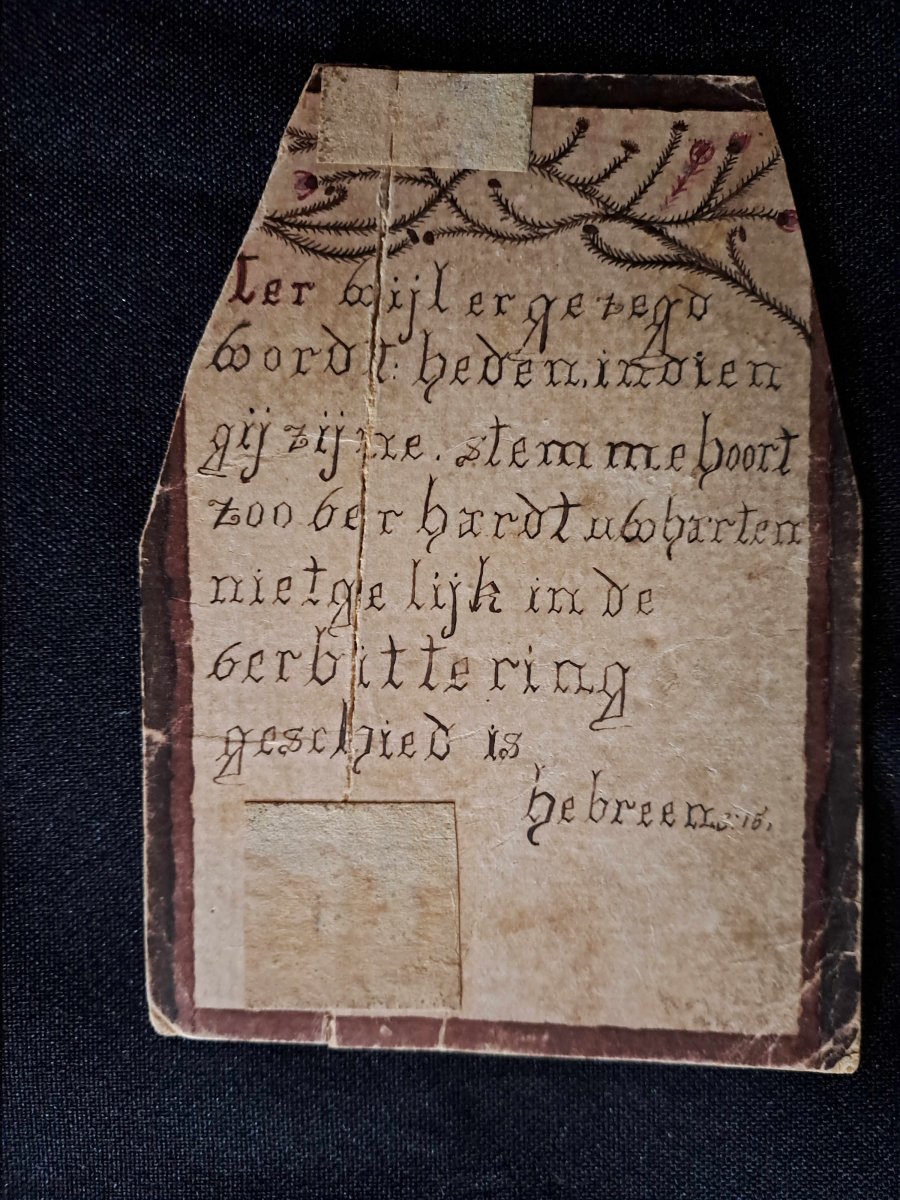 Ter wijl er gezegd
wordt: heden, indien
gij zijne. stemme hoort
zoo verhardt uw harten
niet gelijk in de
verbittering
geschied is
hebreen 3:15.